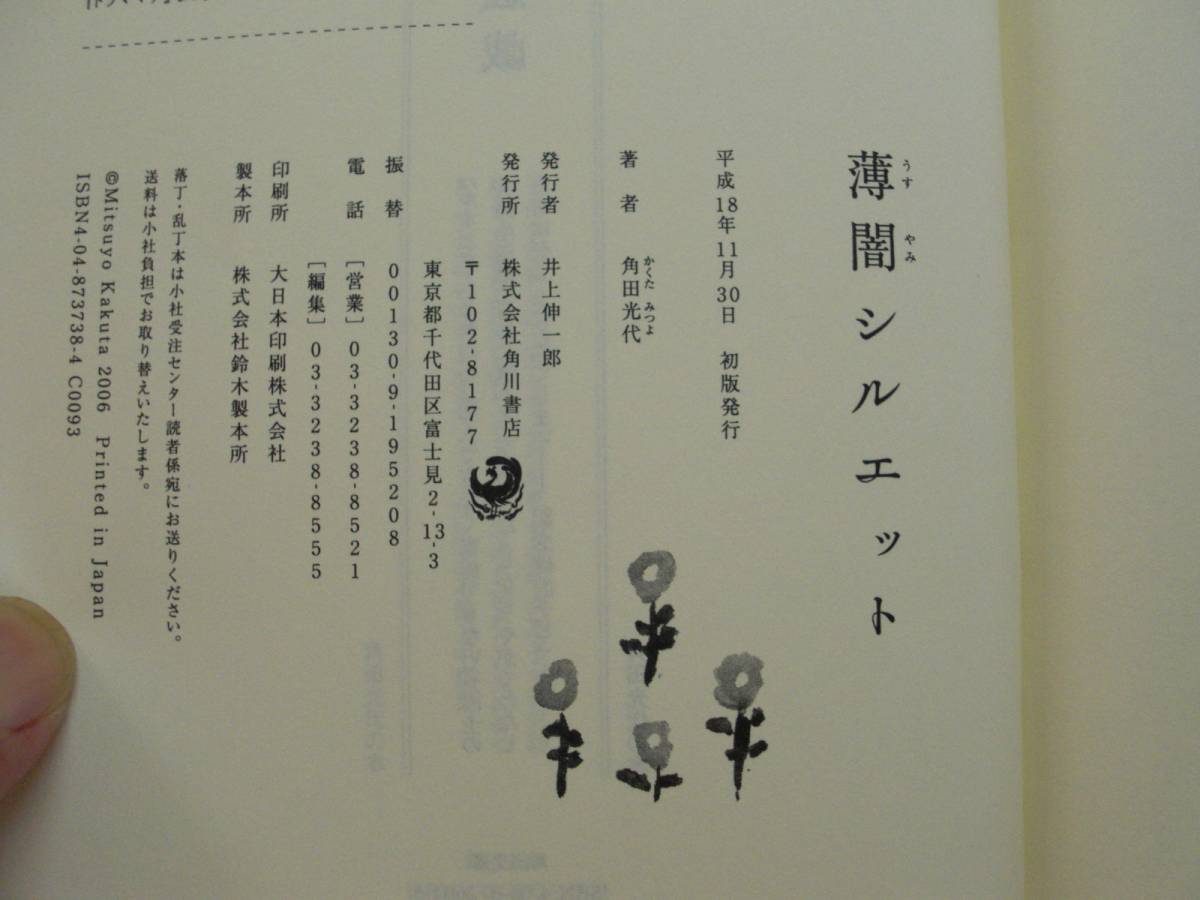 薄闇シルエット
うす やみ
平成18年11月30日 初版発行
著者 角田光代
かくた みつよ
発行者 井上伸一郎
発行所 株式会社角川書店
〒102-8177
東京都千代田区富士見2-13-3
振替 00130-9-195208
電話 [営業] 03-3238-8521
[編集] 03-3238-8555
印刷所 大日本印刷株式会社
製本所 株式会社鈴木製本所
落丁・乱丁本は小社受注センター読者係宛にお送りください。
送料は小社負担でお取り替えいたします。
©Mitsuyo Kakuta 2006 Printed in Japan
ISBN4-04-873738-4 C0093